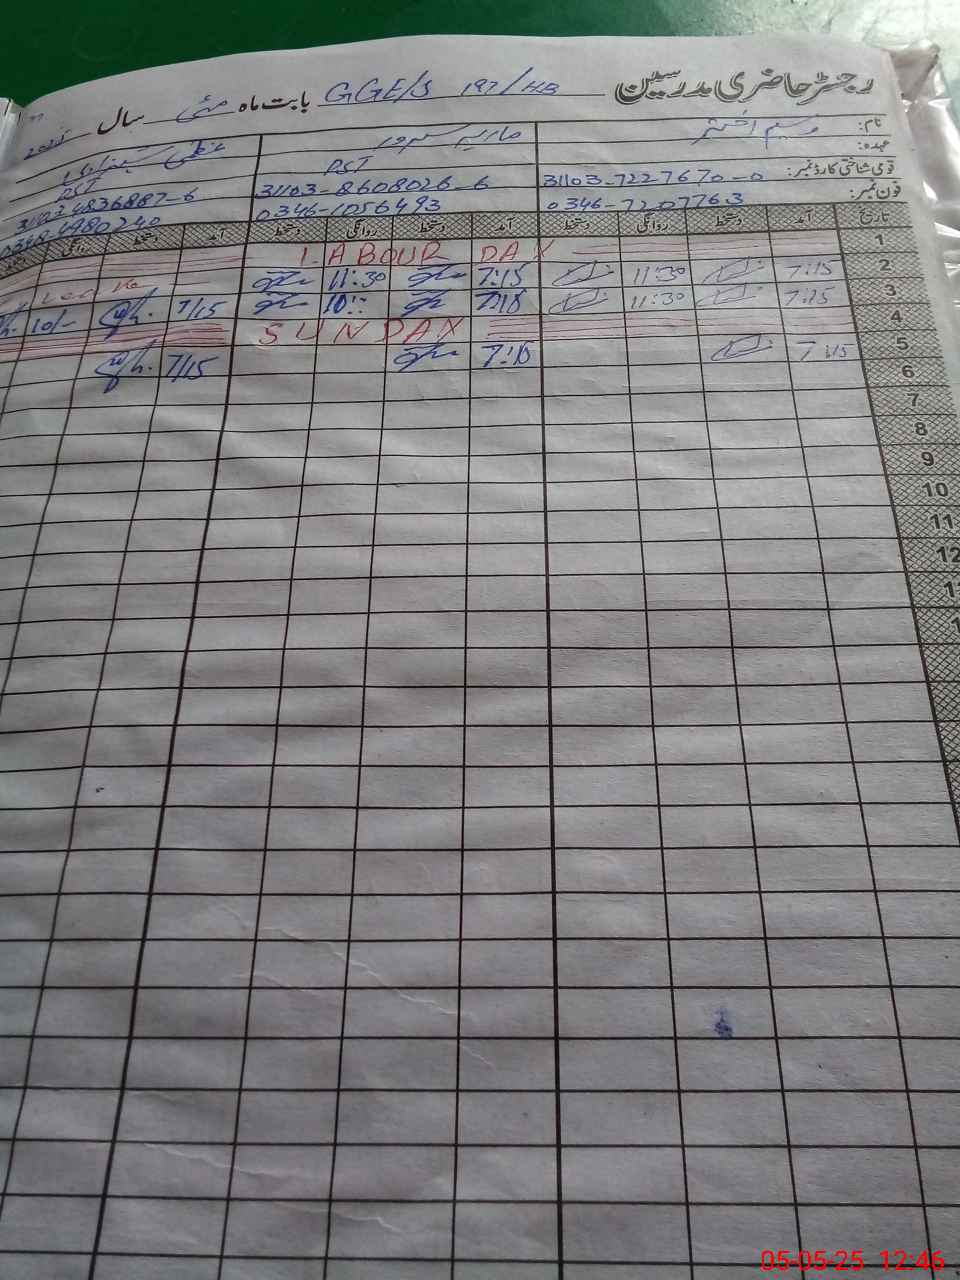 رجسٹر حاضری مدرسین GGE/S 197/HB بابت ماہ مئی سال 2025
نام: وسیم اختر ماریہ سرور عظمیٰ
عہدہ: PST PST
قومی شناختی کارڈ نمبر: 31103-7227670-0 31103-8608026-6
فون نمبر: 0346-7207763 0346-1056493 0348-4980240
تاریخ آمد دستخط روانگی دستخط آمد دستخط روانگی دستخط آمد دستخط روانگی دستخط
1 LABOUR DAY
2 7:15 11:30 7:15 11:30 Leave
3 7:15 11:30 7:15 10:: 7/15 10/-
4 SUNDAY
5 7:15 7:15 7/15
6
7
8
9
10
11
12
05-05-25 12:46